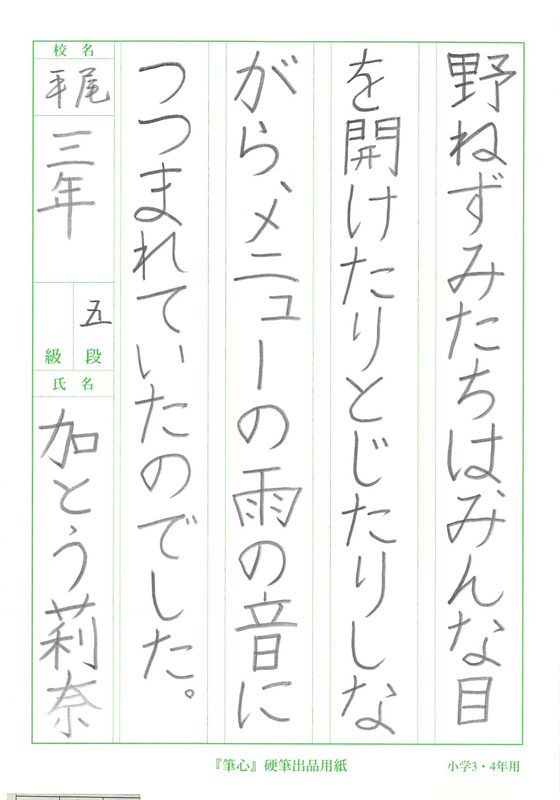 野ねずみたちは、みんな目
を開けたりとじたりしな
がら、メニューの雨の音に
つつまれていたのでした。
校名
平尾
三年
五段
級
氏名
加とう莉奈
『筆心』硬筆出品用紙
小学3・4年用